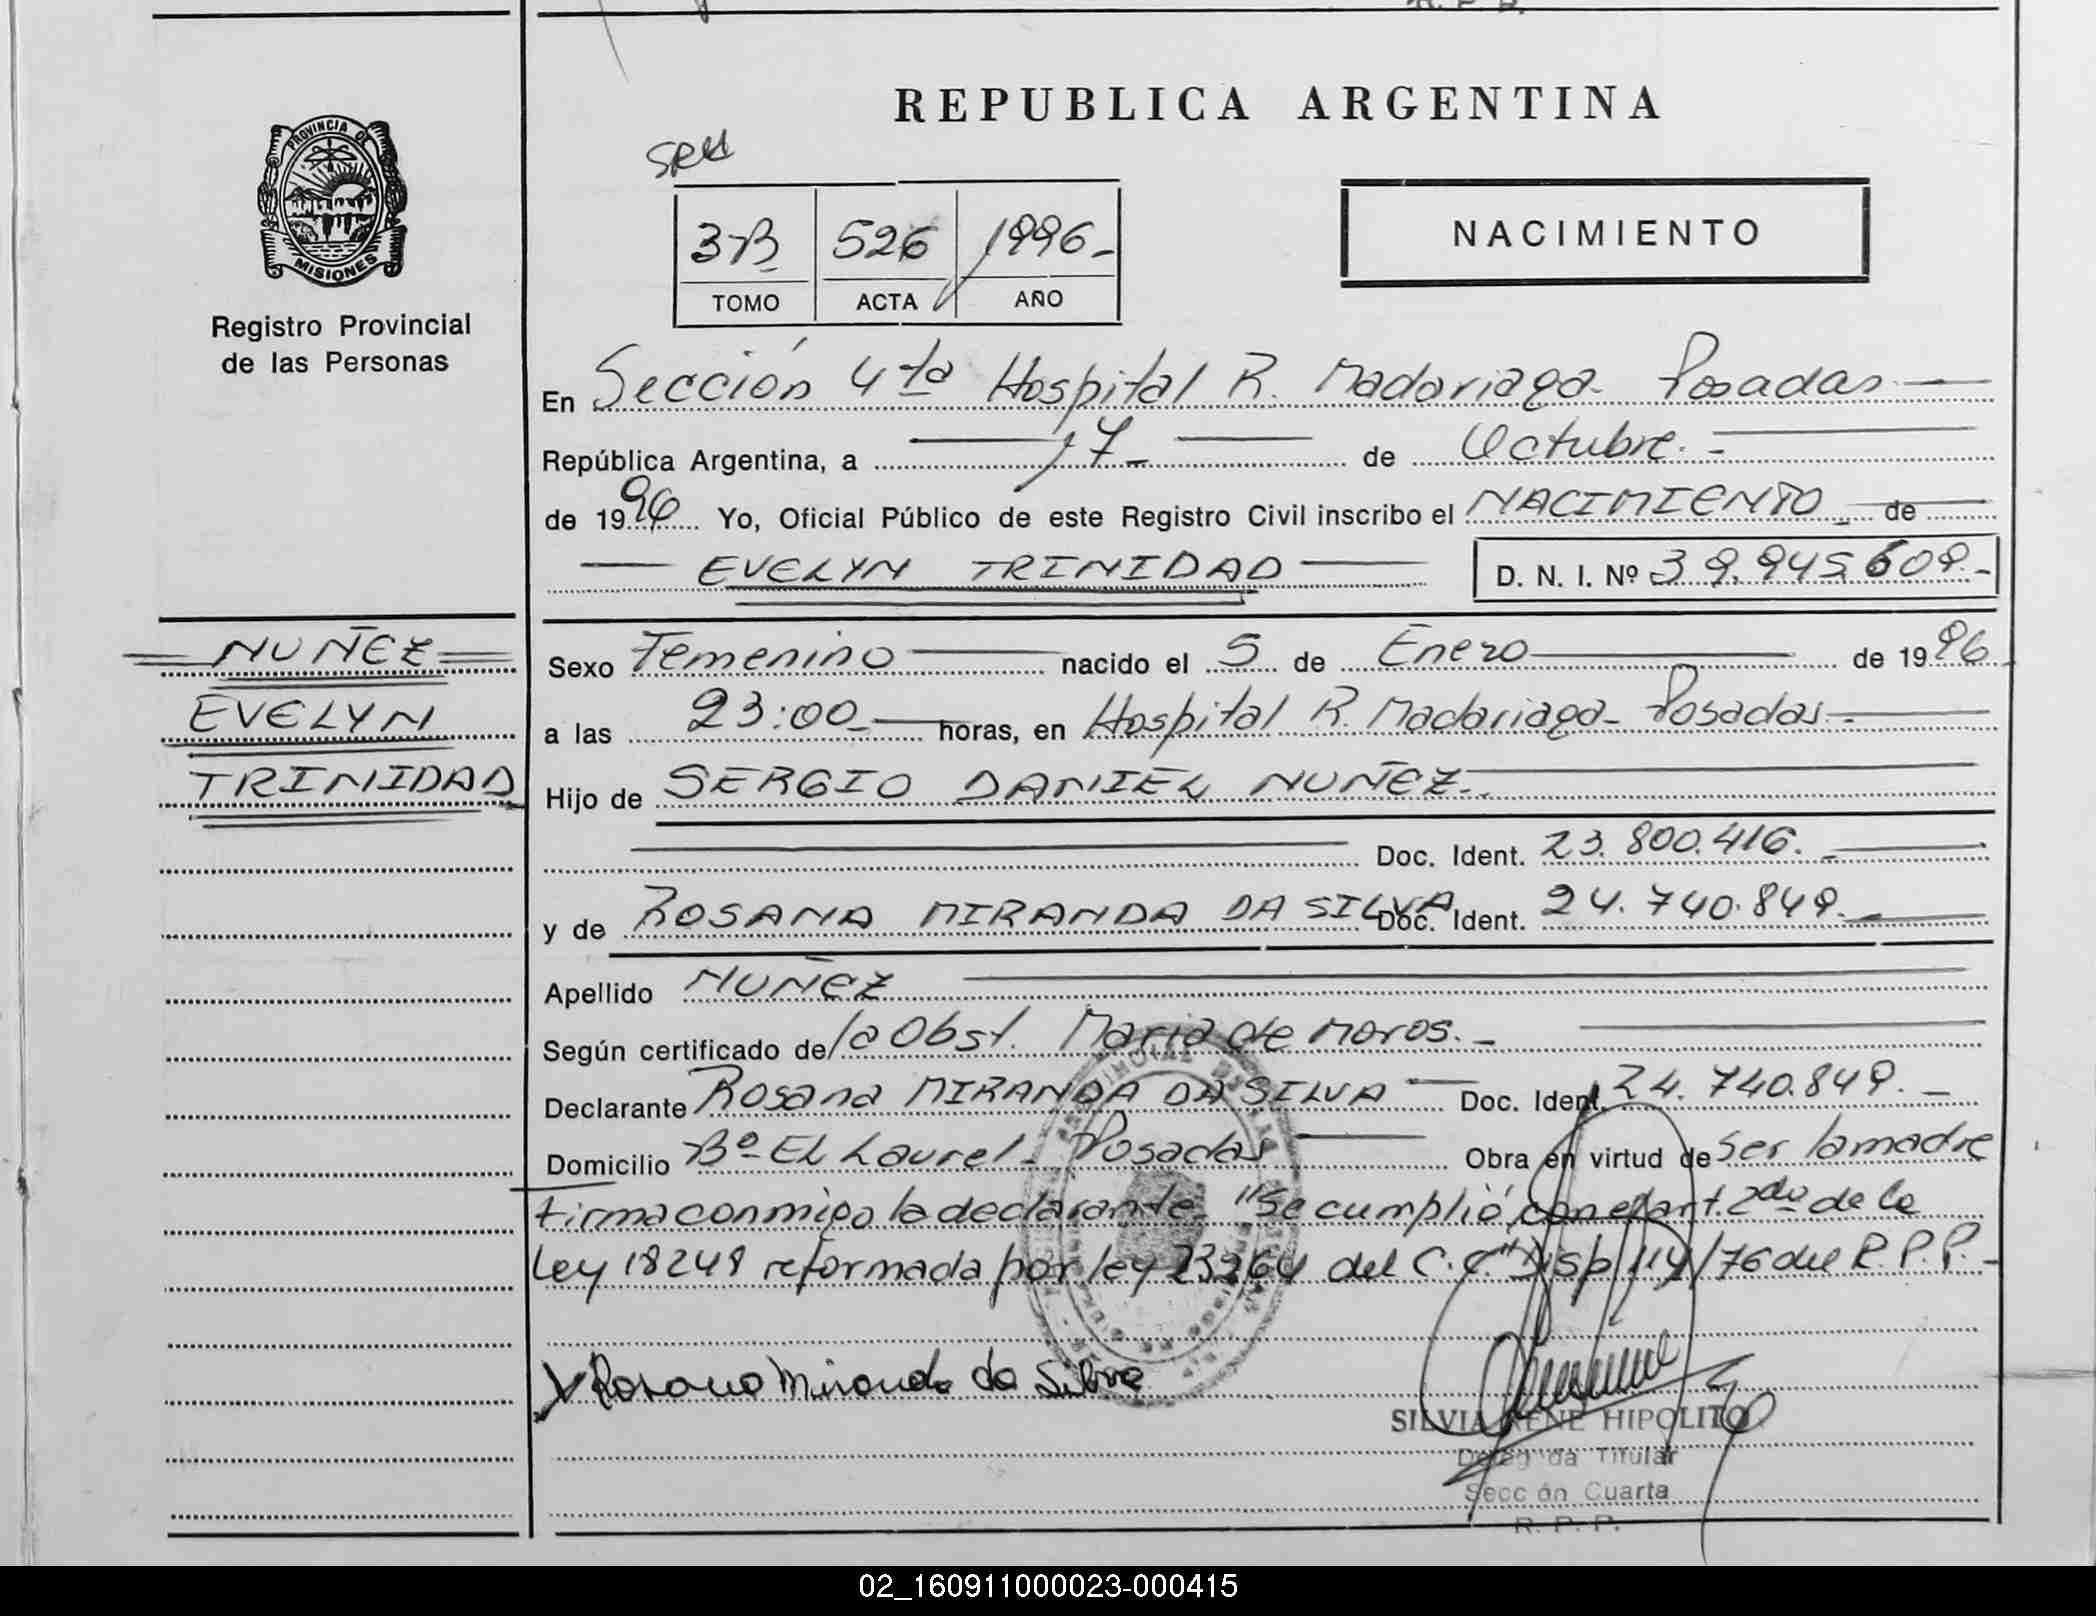 R. P. P.
REPUBLICA ARGENTINA
PROVINCIA DE
MISIONES
Registro Provincial
de las Personas
3-B 526 1996.-
TOMO ACTA AÑO
NACIMIENTO
En Sección 4ta Hospital R. Madariaga- Posadas.-
República Argentina, a 17- de Octubre.-
de 1996 Yo, Oficial Público de este Registro Civil inscribo el NACIMIENTO - de
EVELYN TRINIDAD D. N. I. Nº 39.945.609.-
NUÑEZ
EVELYN
TRINIDAD
Sexo Femenino nacido el 5 de Enero de 1996
a las 23:00- horas, en Hospital R. Madariaga- Posadas.-
Hijo de SERGIO DANIEL NUÑEZ.-
Doc. Ident. 23.800.416.-
y de ROSANA MIRANDA DA SILVA Doc. Ident. 24.740.849.-
Apellido NUÑEZ
Según certificado de la Obst. Maria de Moros.-
Declarante Rosana MIRANDA DA SILVA Doc. Ident. 24.740.849.-
Domicilio Bº El Laurel- Posadas Obra en virtud de ser la madre
Firma conmigo la declarante. "Se cumplió con el art. 2do de la
Ley 18248 reformada por ley 23264 del C.C." Disp 114/76 del R.P.P.-
X Rosana Miranda da Silva
SILVIA IRENE HIPOLITO
Delegada Titular
Sección Cuarta
R. P. P.
02_160911000023-000415